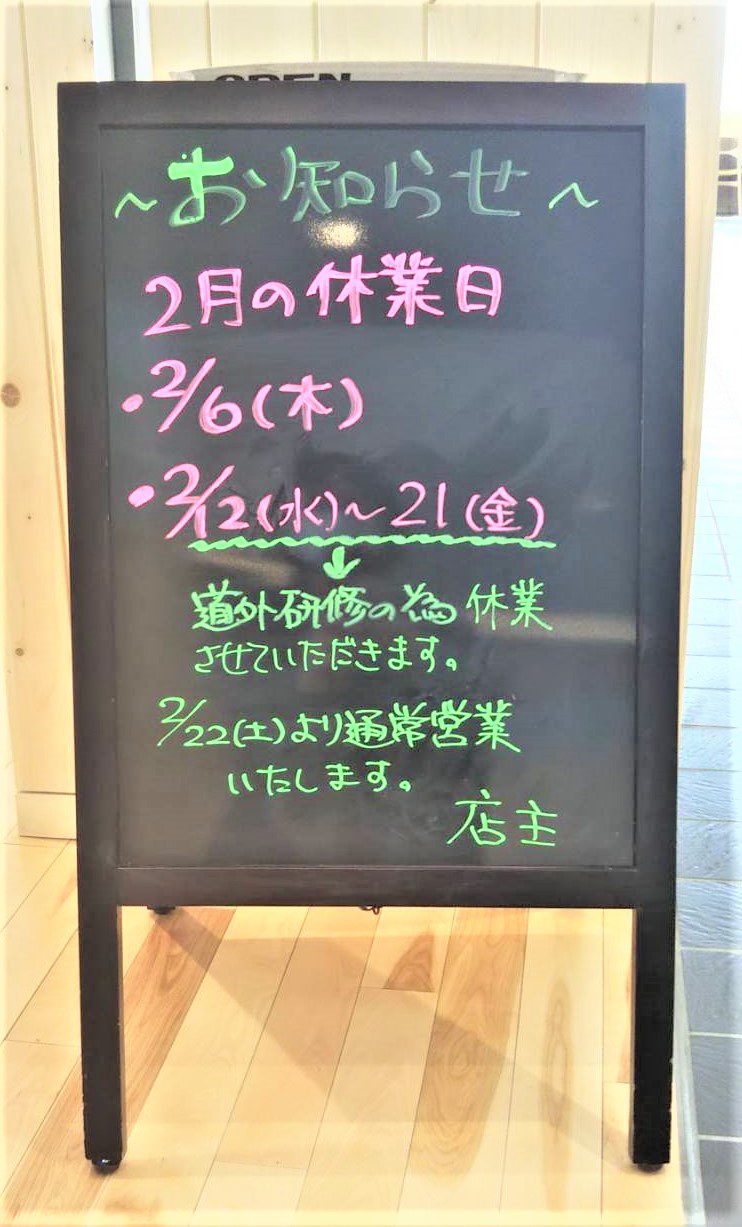 OPEN
~お知らせ~
2月の休業日
・2/6(木)
・2/12(水)~21(金)
↓
道外研修の為休業
させていただきます。
2/22(土)より通常営業
いたします。
店主